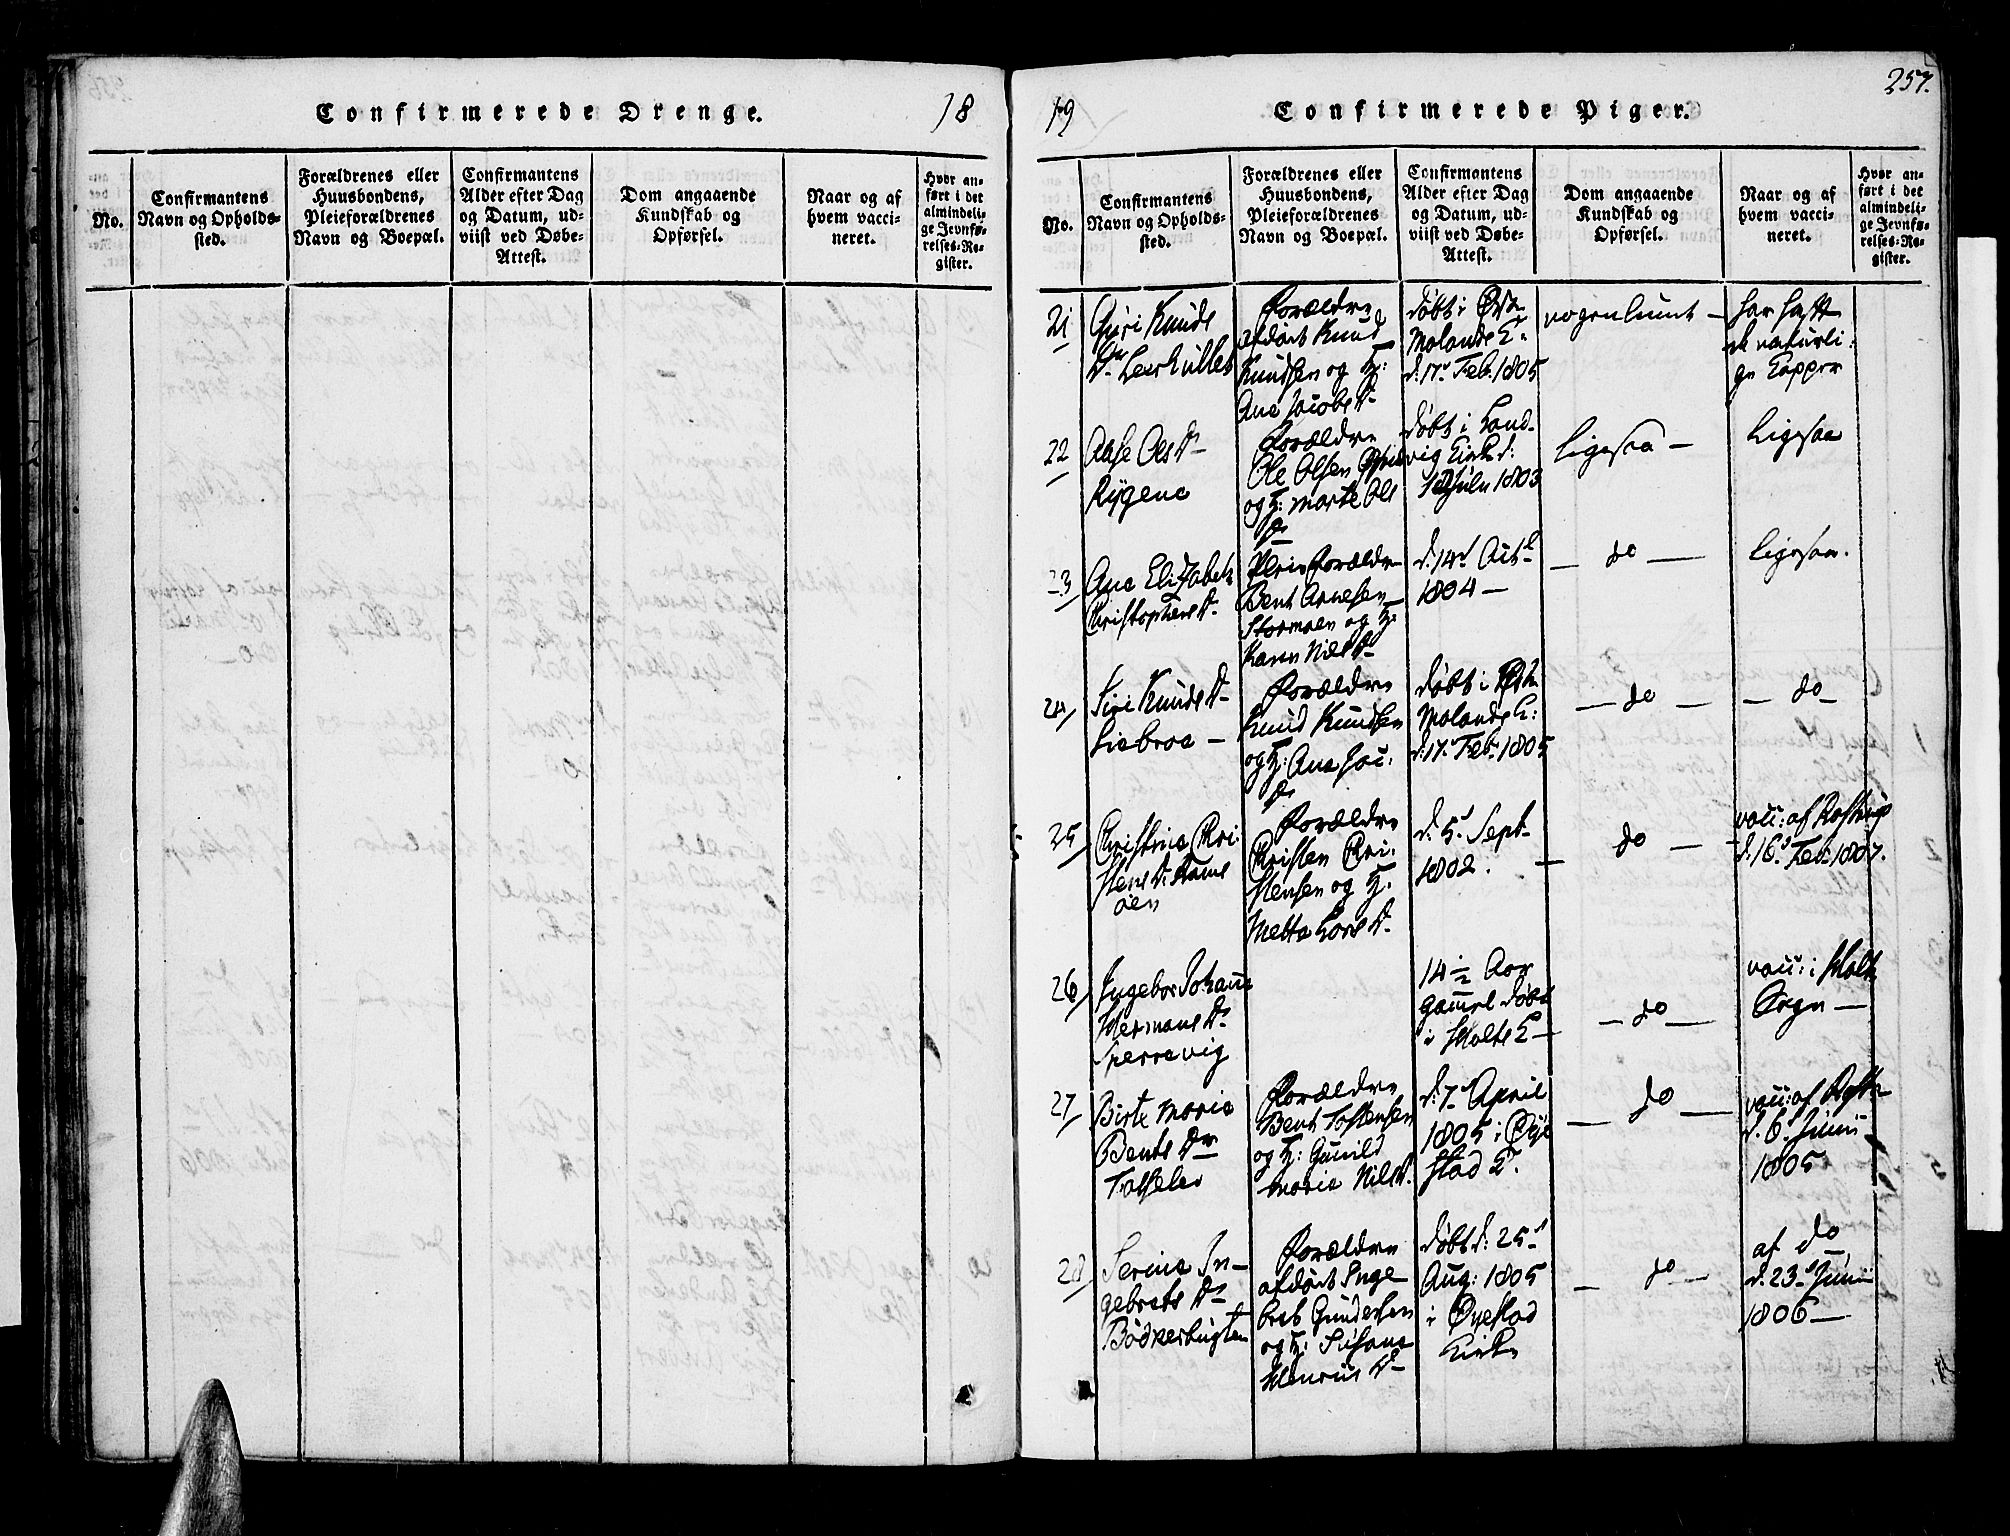 257.
Confirmerede Drenge.
18
No.
Confirmantens
Navn og Opholds-
sted.
Forældrenes eller
Huusbondens,
Pleieforældrenes
Navn og Boepæl.
Confirmantens
Alder efter Dag
og Datum, ud-
viist ved Døbe-
Attest.
Dom angaaende
Kundskab og
Opførsel.
Naar og af
hvem vacci-
neret.
Hvor an-
ført i det
almindeli-
ge Jevnfø-
relses-Re-
gister.
19
Confirmerede Piger.
No.
Confirmantens
Navn og Opholds-
sted.
Forældrenes eller
Huusbondens,
Pleieforældrenes
Navn og Boepæl.
Confirmantens
Alder efter Dag
og Datum, ud-
viist ved Døbe-
Attest.
Dom angaaende
Kundskab og
Opførsel.
Naar og af
hvem vacci-
neret.
Hvor an-
ført i det
almindeli-
ge Jevnfø-
relses-Re-
gister.
21
Guri Knuds
Dr
Forældre
afdøct Knud
Knudsen og H:
Ane Jacobs D
døbt i Østr
Molands K.
d: 17 Feb. 1805
har haft
de naturli:
ge Kopper
22
Aase Oles D
Rygene
Forældre
Ole Olsen
og H: Marte Ols
D
døbt i Land-
vig Kirke d:
Juli 1803
Ligesaa —
Ligesaa
23
Ane Elizabeth
Christophers D
Pleieforældre
Bent Arnesen
Stormoen og H:
Karen Niels D
d. 14d Octb
1804 —
— do —
ligesaa.
24
Siri Knuds D
Liebroe —
Forældre
Knud Knudsen
og H: Ane Jac:
D
døbt i Østr
Molands K:
d. 17 Feb. 1805
— do —
— do —
25
Christine Chri-
stens D.
øen
Forældre
Christen Chri-
stensen og H.
Mette Lars D
d. 5d Sept
1802. —
do —
vacc: af Rostrup
d. 16d Feb. 1807.
26
Ingebor Johane
Hermans D
Sperrevig
14 1/2 Aar
gammel døbt
i Holts K —
— do —
vacc: i Holt
Sogn —
27
Birte Marie
Bents Dr
Forældre
Bent Tostensen
og H: Gunild
Marie Nils D.
d: 7 April
1805 i Øye
stad K.
— do —
vacc: af Rostr
d. 6d Junii
1805
28
Serine In-
gebrets D
Bødkerbugten
Forældre
afdøct Inge-
bret Gundersen
og H: Susane
Henriks D
døbt d: 25d
Aug: 1805
i Øyestad
Kirke
— do —
af do
d. 23d Junii
1806 —